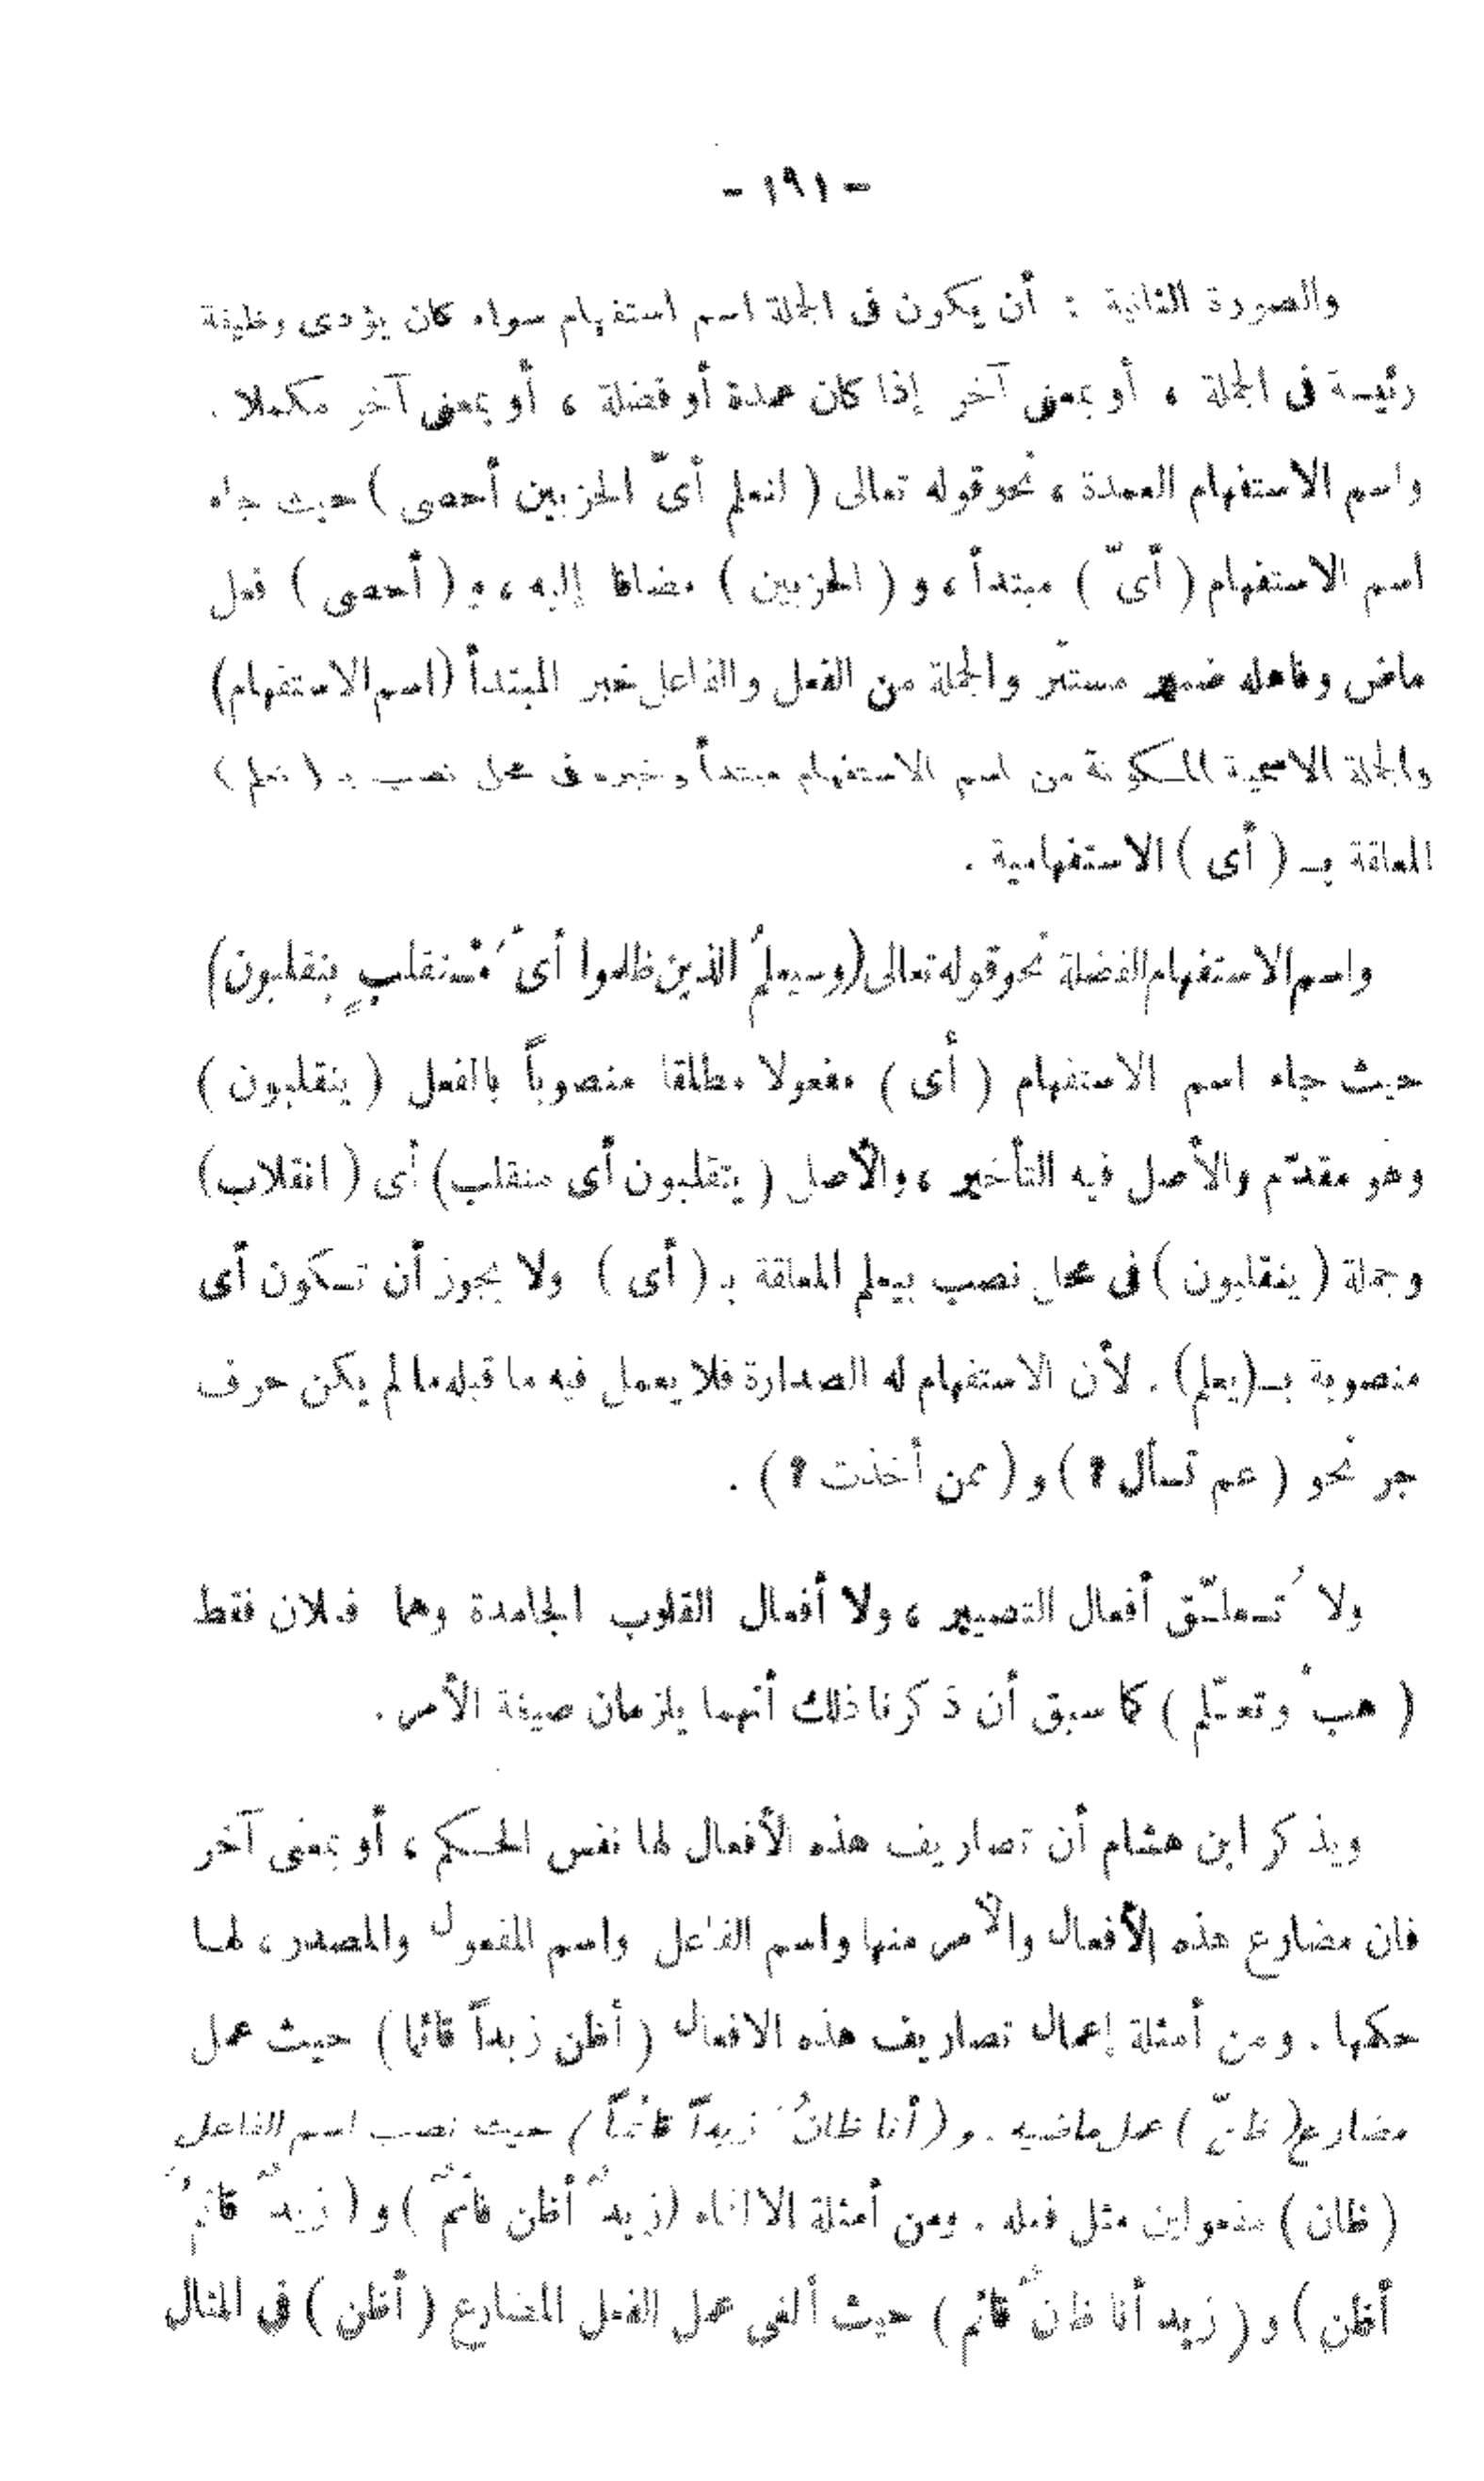 - ١٩١ -
والصورة الثانية : أن يكون فى الجملة اسم استفهام سواء كان يؤدى وظيفة
رئيسة فى الجملة ، أو بمعنى آخر إذا كان عمدة أو فضلة ، أو بمعنى آخر مكملا .
واسم الاستفهام العمدة ، نحو قوله تعالى ( لنعلم أىّ الحزبين أحصى ) حيث جاء
اسم الاستفهام ( أىّ ) مبتدأ ، و ( الحزبين ) مضافا إليه ، و ( أحصى ) فعل
ماض وفاعله ضمير مستتر والجملة من الفعل والفاعل خبر المبتدأ (اسم الاستفهام)
والجملة الاسمية المكونة من اسم الاستفهام مبتدأ وخبره فى محل نصب بـ ( نعلم )
المعلقة بـ ( أى ) الاستفهامية .
واسم الاستفهام الفضلة نحو قوله تعالى (وسيعلمُ الذين ظلموا أىَّ مُنقلبٍ ينقلبون)
حيث جاء اسم الاستفهام ( أى ) مفعولا مطلقا منصوباً بالفعل ( ينقلبون )
وهو مقدّم والأصل فيه التأخير ، والأصل ( ينقلبون أى منقلب ) أى ( انقلاب )
وجملة ( ينقلبون ) فى محل نصب بيعلم المعلقة بـ ( أى ) ولا يجوز أن تكون أى
منصوبة بـ (يعلم) . لأن الاستفهام له الصدارة فلا يعمل فيه ما قبله ما لم يكن حرف
جر نحو ( عم تسأل ؟ ) و ( ممن أخذت ؟ ) .
ولا تُعلّق أفعال التصيير ، ولا أفعال القلوب الجامدة وهما فعلان فقط
( هبْ وتعلّم ) كما سبق أن ذكرنا ذلك أنهما يلزمان صيغة الأمر .
ويذكر ابن هشام أن تصاريف هذه الأفعال لها نفس الحكم ، أو بمعنى آخر
فان مضارع هذه الأفعال والأمر منها واسم الفاعل واسم المفعول والمصدر ، لها
حكمها . ومن أمثلة إعمال تصاريف هذه الافعال ( أظن زيداً قائما ) حيث عمل
مضارع ( ظنّ ) عمل ماضيه . و ( أنا ظانٌ زيداً قائماً ) حيث نصب اسم الفاعل
( ظان ) مفعولين مثل فعله . ومن أمثلة الالغاء (زيدٌ أظن قائمٌ ) و ( زيدٌ قائمٌ
أظن ) و ( زيد أنا ظانٌ قائم ) حيث ألغى عمل الفعل المضارع ( أظن ) فى المثال